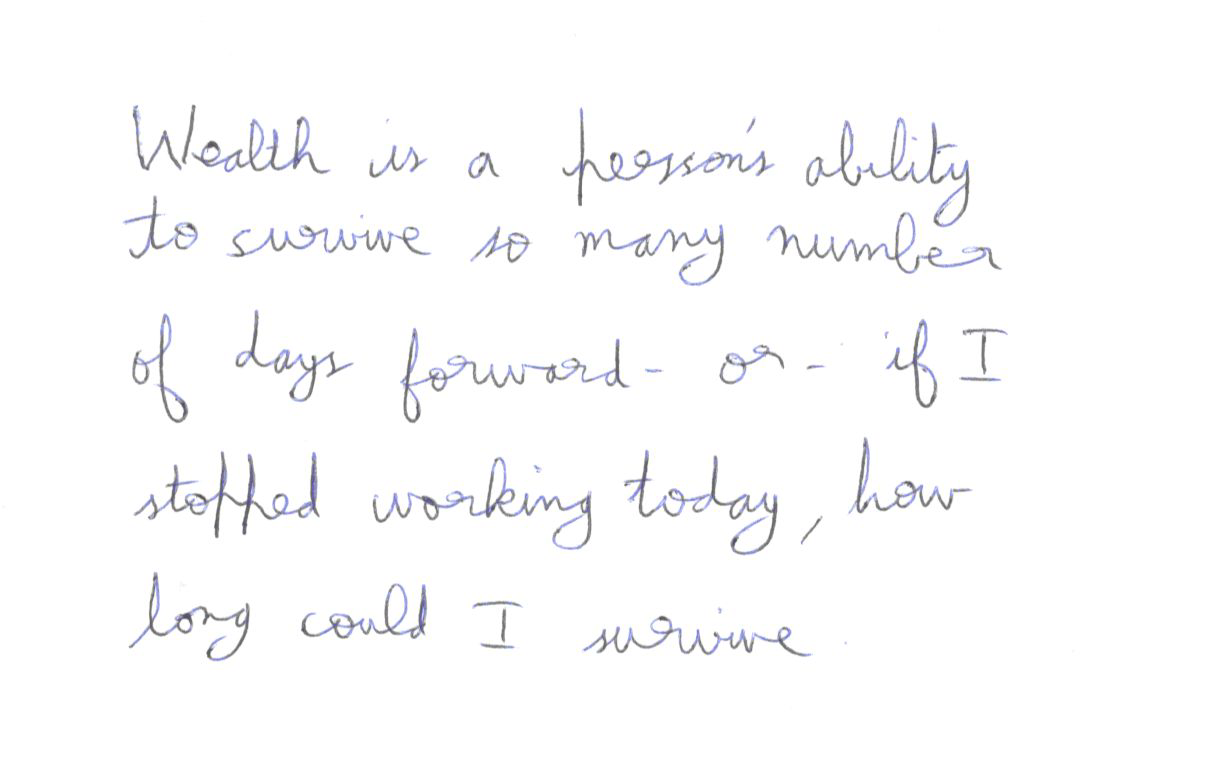 Wealth is a person's ability
to survive so many number
of days forward - or - if I
stopped working today, how
long could I survive.